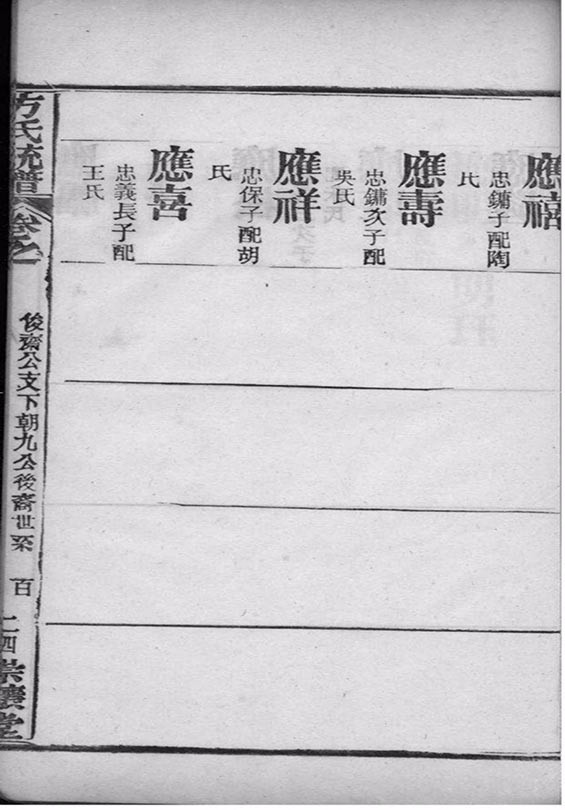 應禧
忠鏞子配陶
氏
應壽
忠鏞次子配
吳氏
應祥
忠保子配胡
氏
應喜
忠義長子配
王氏
方氏統譜
卷之
俊齋公支下朝九公後裔世系
百
二四
崇讓堂